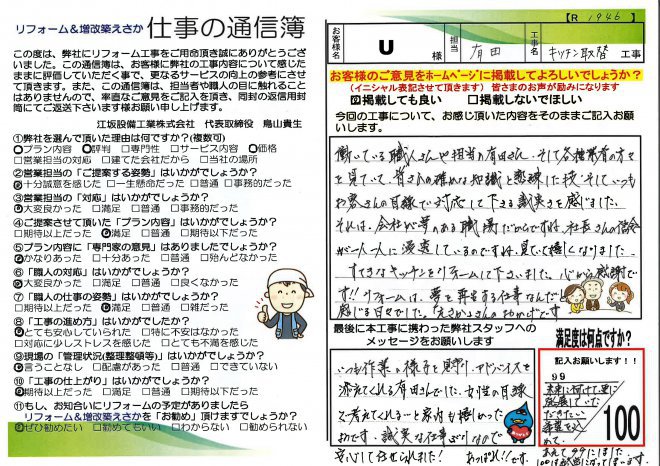 リフォーム&増改築えさか 仕事の通信簿
この度は、弊社にリフォーム工事をご用命頂き誠にありがとうござ
いました。この通信簿は、お客様に弊社の工事内容について感じた
ままに評価していただく事で、更なるサービスの向上の参考にさせ
て頂きます。また、この通信簿は、担当者や職人の目に触れること
はありませんので、率直なご意見をご記入を頂き、同封の返信用封
筒にてご返送下さいます様お願い申し上げます。
江坂設備工業株式会社 代表取締役 鳥山貴生
①弊社を選んで頂いた理由は何ですか?(複数可)
プラン内容 評判 □専門性 □サービス内容 価格
□営業担当の対応 □建てた会社だから □当社の場所
②営業担当の「ご提案する姿勢」はいかがでしょうか?
十分誠意を感じた □一生懸命だった □普通 □事務的だった
③営業担当の「対応」はいかがでしょうか?
大変良かった □満足 □普通 □事務的だった
④ご提案させて頂いた「プラン内容」はいかがでしょうか?
□期待以上だった 満足 □普通 □期待以下だった
⑤プラン内容に「専門家の意見」はありましたでしょうか?
かなりあった □十分あった □普通 □殆んどなかった
⑥「職人の対応」はいかがでしょうか?
大変良かった □満足 □普通 □良くなかった
⑦「職人の仕事の姿勢」はいかがでしょうか?
□期待以上だった 満足 □普通 □雑だった
⑧「工事の進め方」はいかがでしたか?
とても安心していられた □特に不安はなかった
□対応に少しストレスを感じた □とても不満を感じた
⑨現場の「管理状況(整理整頓等)」はいかがでしょうか?
言うことなし □配慮があった □できていない
⑩「工事の仕上がり」はいかがでしょうか?
期待以上だった □満足 □普通 □期待以下だった
⑪もし、お知合いにリフォームの予定がありましたら
リフォーム&増改築えさかを「お勧め」頂けますでしょうか?
ぜひ勧めたい □勧めてもいい □わからない □勧められない
【R 1946】
お客様名 U 様 担当 有田 工事名 キッチン取替 工事
お客様のご意見をホームページに掲載してよろしいでしょうか?
(イニシャル表記させて頂きます) 皆さまのお声が励みになります
☑掲載しても良い □掲載しないでほしい
今回の工事について、お感じ頂いた内容をそのままご記入お願
いします。
働いている職人さんや担当の有田さん、そして各種業者の方々
を見ていて、皆さんの確かな知識と熟練した技、そしていつも
お客さんの目線で対応して下さる誠実さを感じました。
それは、会社が夢のある職場だからですね。社長さんの信念
が一人一人に浸透しているのですね。見ていて嬉しくなりました。
すてきなキッチンをリフォームして下さいました。心から感謝で
す!!リフォームは、夢を再生する仕事なんだと
感じる日々でした。えさかさんのおかげです。
最後に本工事に携わった弊社スタッフへの
メッセージをお願いします
いつも作業の様子を見守り、アドバイスを
添えてくれる有田さんでした。女性の目線
で考えてくれると家内も喜んで
おります。誠実な仕事ぶりなので
安心して任せられました!
満足度は何点ですか?
記入お願いします!!
99
100